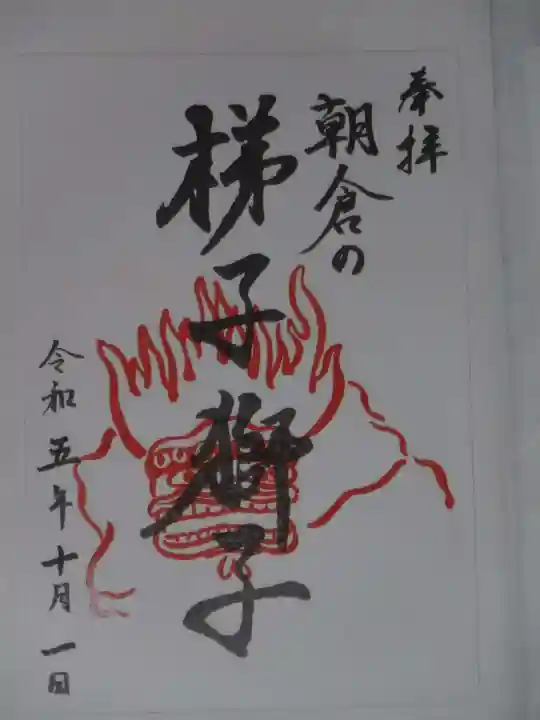 奉拝
朝倉の
梯子獅子
令和五年十月一日